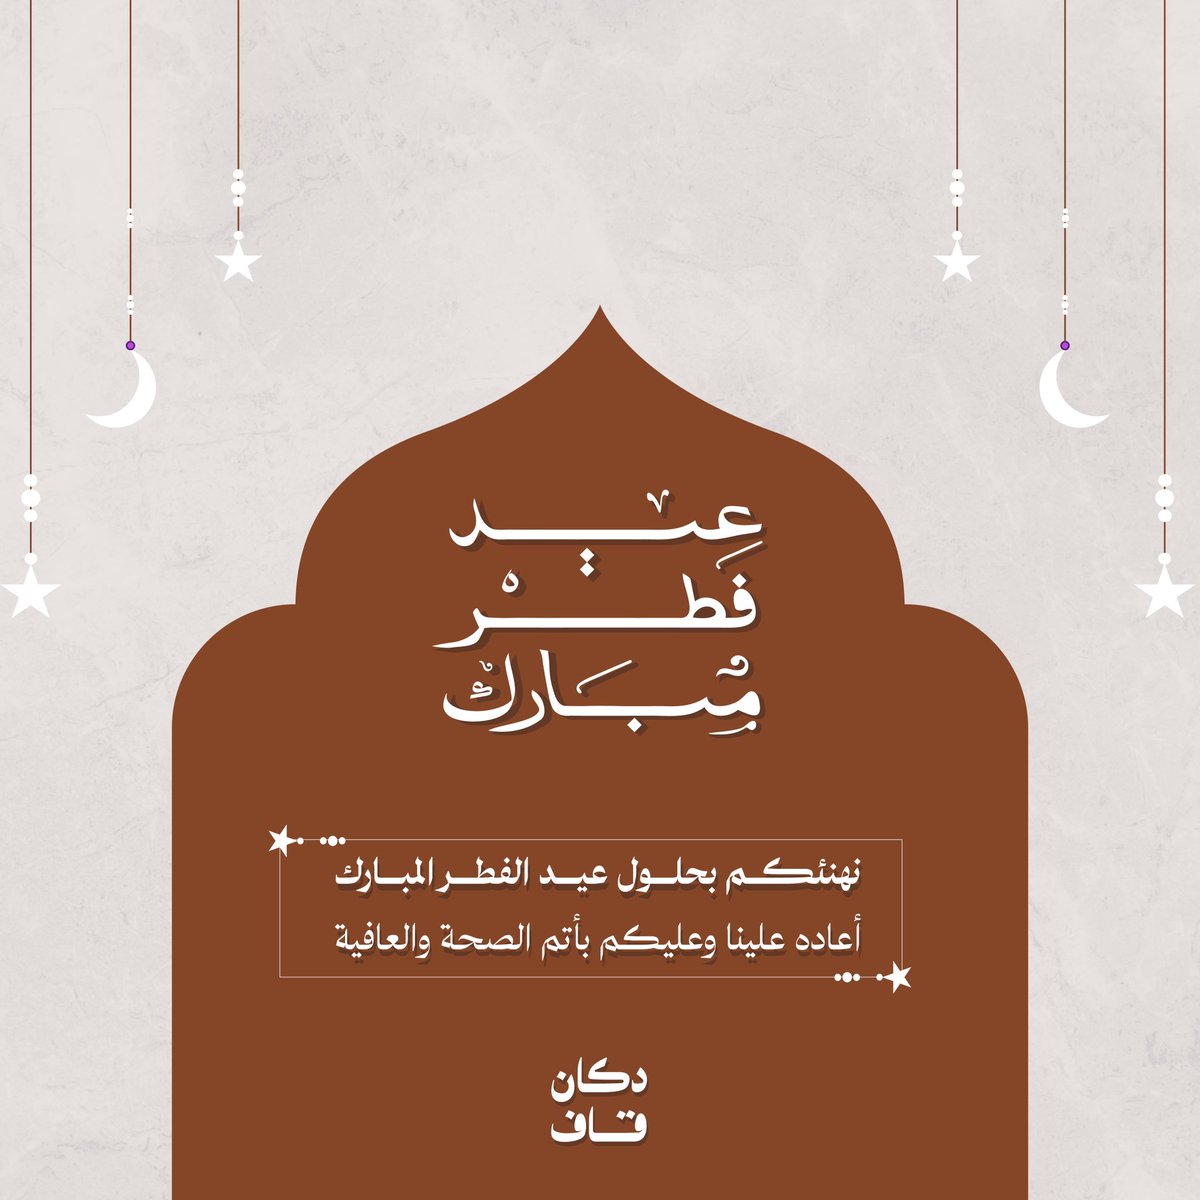 عيد
فطر
مبارك
نهنئكم بحلول عيد الفطر المبارك
أعاده علينا وعليكم بأتم الصحة والعافية
دكان
قاف